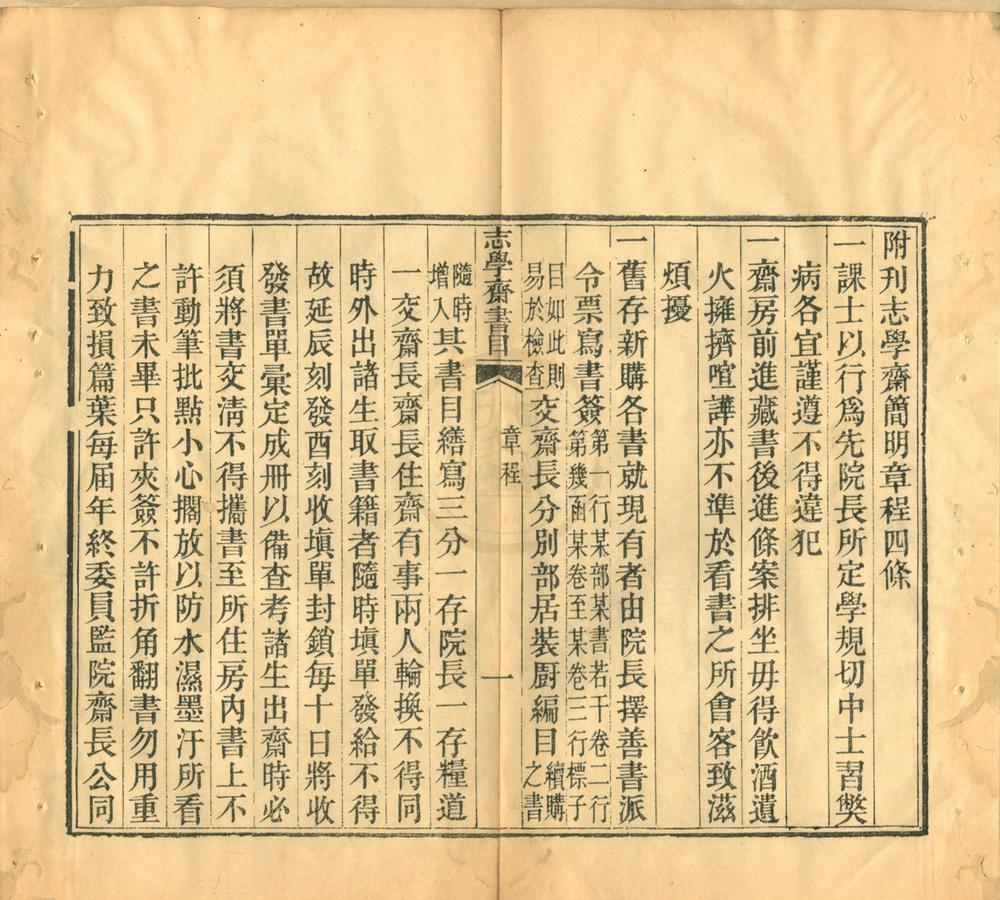 附刊志學齋簡明章程四條
一課士以行爲先院長所定學規切中士習獘
病各宜謹遵不得違犯
一齋房前進藏書後進條案排坐毋得飲酒遺
火擁擠喧譁亦不準於看書之所會客致滋
煩擾
一舊存新購各書就現有者由院長擇善書派
令票寫書簽第一行某部某書若干卷二行第幾函某卷至某卷三行標子
目如此則易於檢查交齋長分別部居裝廚編目續購之書
志學齋書目
章程
一
隨時增入其書目繕寫三分一存院長一存糧道
一交齋長齋長住齋有事兩人輪換不得同
時外出諸生取書籍者隨時填單發給不得
故延辰刻發酉刻收填單封鎖每十日將收
發書單彙定成冊以備查考諸生出齋時必
須將書交清不得攜書至所住房內書上不
許動筆批點小心擱放以防水濕墨汙所看
之書未畢只許夾簽不許折角翻書勿用重
力致損篇葉每届年終委員監院齋長公同